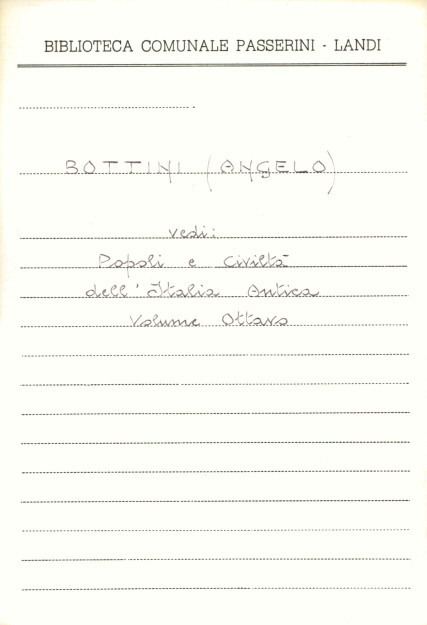 BIBLIOTECA COMUNALE PASSERINI - LANDI
BOTTINI (ANGELO)
vedi:
Popoli e Civiltà
dell'Italia Antica
Volume Ottavo